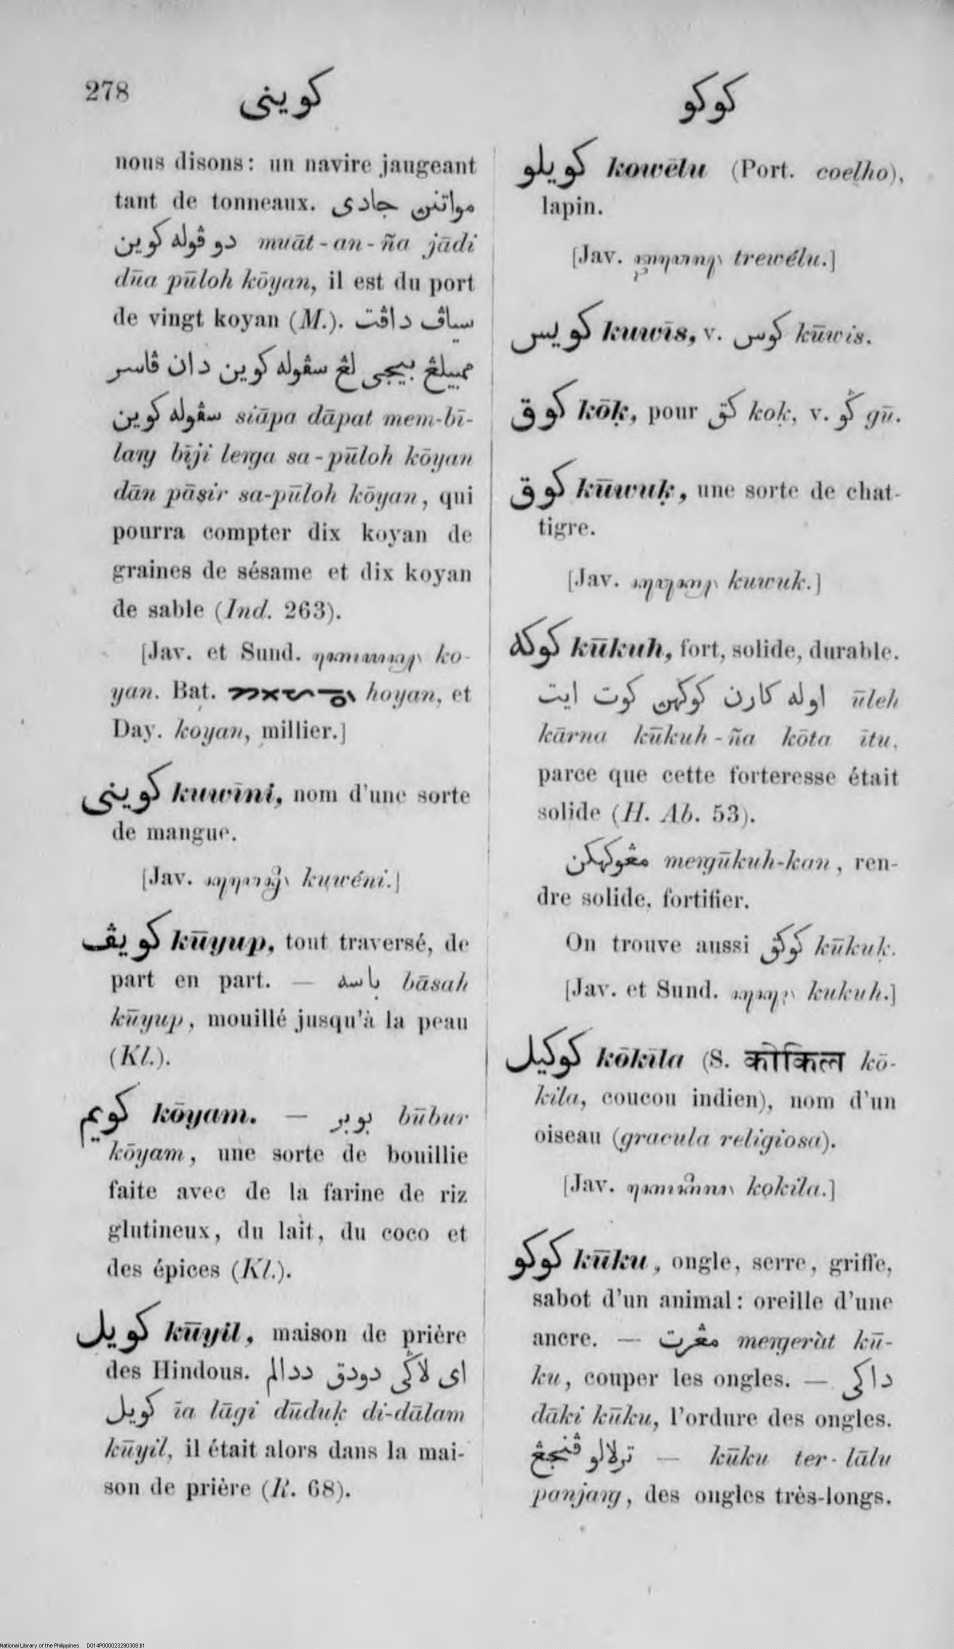 278
كويني
كوكو
nous disons: un navire jaugeant
tant de tonneaux. مواتنن جادي
دو ڤوله كوين muāt-an-ña jādi
dūa pūloh kōyan, il est du port
de vingt koyan (M.). سياڤ داڤت
ممبيلڠ بيجي لڠ سڤوله كوين دان ڤاسر
سڤوله كوين siāpa dāpat mem-bī-
laŋ bīji leŋa sa-pūloh kōyan
dān pāsir sa-pūloh kōyan, qui
pourra compter dix koyan de
graines de sésame et dix koyan
de sable (Ind. 263).
[Jav. et Sund. ko-
yan. Bat. hoyan, et
Day. koyan, millier.]
كويني kuwīni, nom d'une sorte
de mangue.
[Jav. kuwéni.]
كويڤ kūyup, tout traversé, de
part en part. — باسه bāsah
kūyup, mouillé jusqu'à la peau
(Kl.).
كويم kōyam. — بوبر būbur
kōyam, une sorte de bouillie
faite avec de la farine de riz
glutineux, du lait, du coco et
des épices (Kl.).
كويل kūyil, maison de prière
des Hindous. اي لاڬي دودق ددالم
كويل īa lāgi dūduḳ di-dālam
kūyil, il était alors dans la mai-
son de prière (R. 68).
كويلو kowēlu (Port. coelho),
lapin.
[Jav. trewélu.]
كويس kuwīs, v. كوس kūwis.
كوق kōḳ, pour كق koḳ, v. ڬو gū.
كوق kūwuḳ, une sorte de chat-
tigre.
[Jav. kuwuk.]
كوكه kūkuh, fort, solide, durable.
اوله كارن كوكهن كوت ايت ūleh
kārna kūkuh-ña kōta ītu,
parce que cette forteresse était
solide (H. Ab. 53).
مڠوكهكن meŋūkuh-kan, ren-
dre solide, fortifier.
On trouve aussi كوكق kūkuḳ.
[Jav. et Sund. kukuh.]
كوكيل kōkīla (S. कोकिल kō-
kila, coucou indien), nom d'un
oiseau (gracula religiosa).
[Jav. kokila.]
كوكو kūku, ongle, serre, griffe,
sabot d'un animal: oreille d'une
ancre. — مڠرت meŋeràt kū-
ku, couper les ongles. — داكي
dāki kūku, l'ordure des ongles.
— ترلالو ڤنجڠ kūku ter-lālu
panjaŋ, des ongles très-longs.
National Library of the Philippines